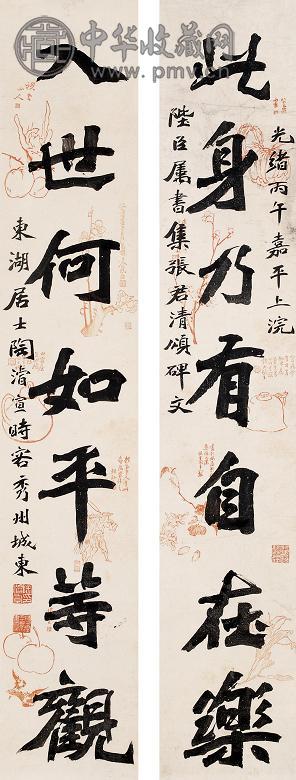 此身乃有自在樂
光緒丙午嘉平上浣
陛臣屬書集張君清頌碑文
入世何如平等觀
東湖居士陶濬宣時客秀州城東
中华收藏网
www.pmv.cn